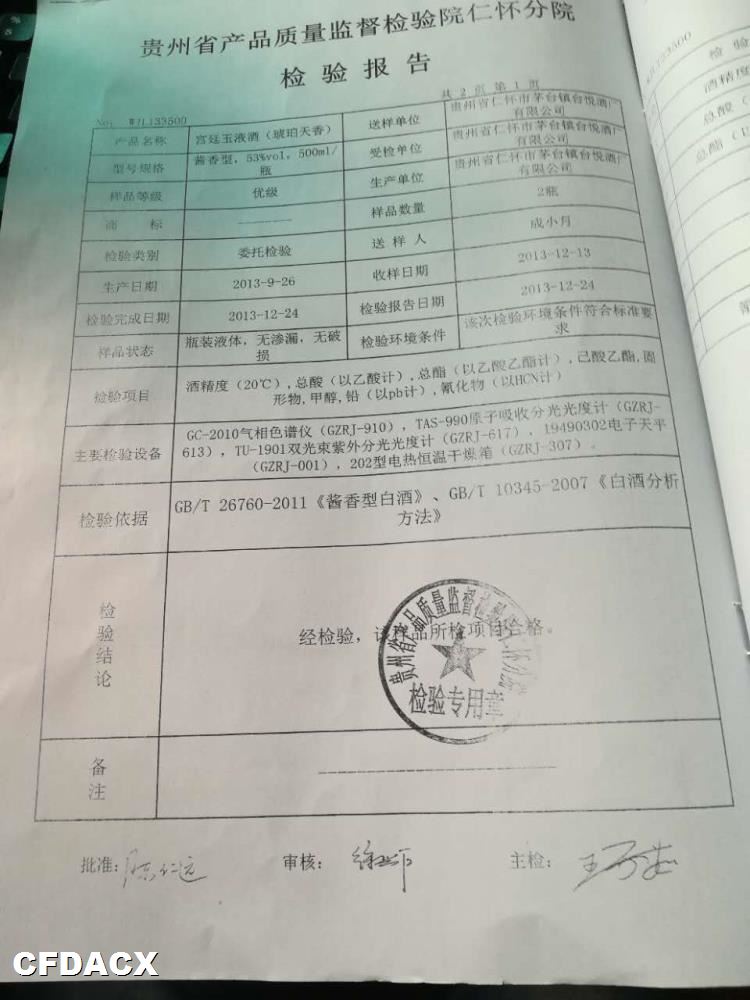 贵州省产品质量监督检验院仁怀分院
检验报告
共 2 页 第 1 页
No: WJL133500
产品名称 宫廷玉液酒（琥珀天香） 送样单位 贵州省仁怀市茅台镇台悦酒厂有限公司
型号规格 酱香型，53%vol，500ml/瓶 受检单位 贵州省仁怀市茅台镇台悦酒厂有限公司
样品等级 优级 生产单位 贵州省仁怀市茅台镇台悦酒厂有限公司
商标 ———— 样品数量 2瓶
检验类别 委托检验 送样人 成小月
生产日期 2013-9-26 收样日期 2013-12-13
检验完成日期 2013-12-24 检验报告日期 2013-12-24
样品状态 瓶装液体，无渗漏，无破损 检验环境条件 该次检验环境条件符合标准要求
检验项目 酒精度（20℃），总酸（以乙酸计），总酯（以乙酸乙酯计），己酸乙酯，固
形物，甲醇，铅（以pb计），氰化物（以HCN计）
主要检验设备 GC-2010气相色谱仪（GZRJ-910），TAS-990原子吸收分光光度计（GZRJ-
613），TU-1901双光束紫外分光光度计（GZRJ-617），19490302电子天平
（GZRJ-001），202型电热恒温干燥箱（GZRJ-307）。
检验依据 GB/T 26760-2011《酱香型白酒》、GB/T 10345-2007《白酒分析
方法》
检验结论 经检验，该样品所检项目合格。
贵州省产品质量监督检验院仁怀分院
检验专用章
备注 ————————
批准：
审核：
主检：
WJL133500
检验
酒精度
总酸
总酯（以
CFDACX